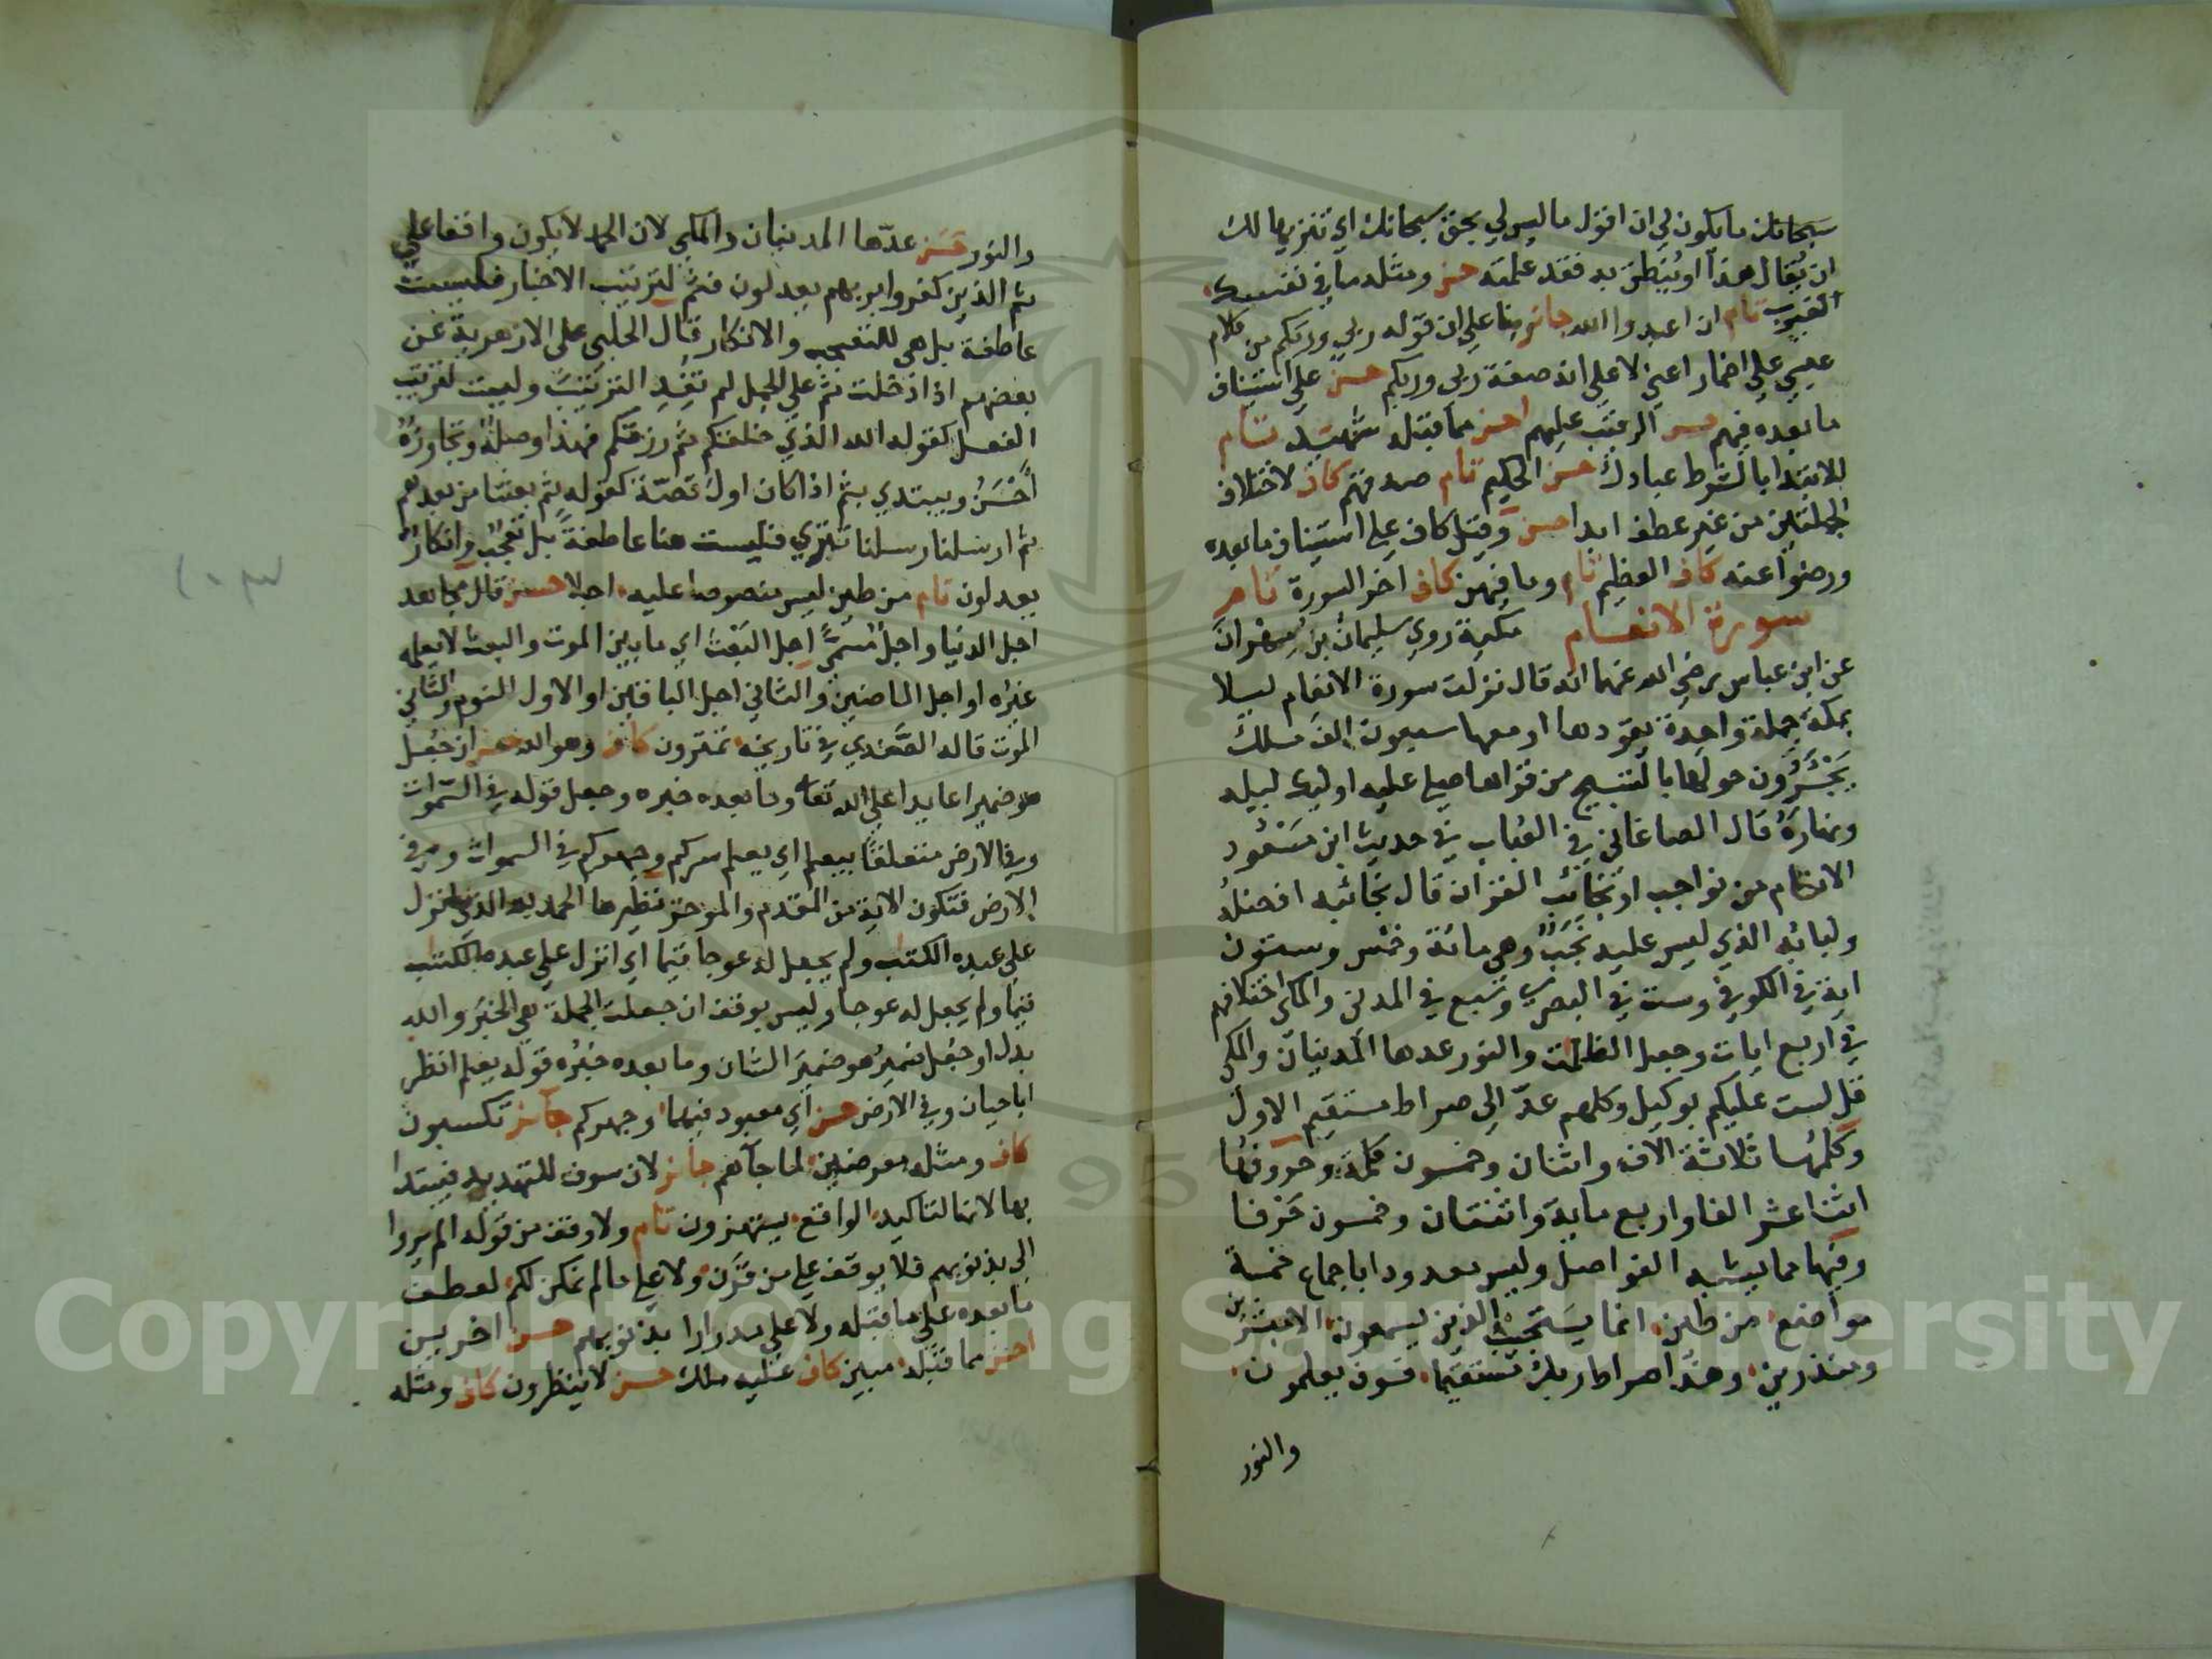 سبحانك ما يكون لي ان اقول ما ليس لي بحق سبحانك اي تنزيها لك
ان يُقال هذا او يُنطق به فقد علمته حسن ومثله ما في نفسك
الغيوب تام ان اعبدوا الله جائز بنا على ان قوله ربي وربكم من كلام
عيسي علي اضمار اعني لا علي انه صفة ربي وربكم حسن علي استيناف
ما بعده فيهم حسن الرقيب عليهم احسن مما قبله شهيد تام
للابتدا بالشرط عبادك حسن الحكيم تام صدقهم كاف لاختلاف
الجملتين من غير عطف ابدا حسن وقيل كاف علي استيناف ما بعده
ورضوا عنه كاف العظيم تام وما فيهن كاف اخر السورة تام
سورة الانعام مكية روي سليمان بن مهران
عن ابن عباس رضي الله عنهما انه قال نزلت سورة الانعام ليلا
بمكة جملة واحدة يقودها او معها سبعون الف ملك
يَجْئَرُون حولها بالتسبيح من قراها صلي عليه اوليك ليله
ونهاره قال الصاغاني في العُباب في حديث ابن مسعود
الانعام من نواجب او نجائب القران قال نجائبه افضله
ولبابه الذي ليس عليه نَجَبٌ وهي مائة وخمس وستون
اية في الكوفي وست في البصري وسبع في المدني والمكي اختلافهم
في اربع ايات وجعل الظلمت والنور عدها المدنيان والمكي
قل لست عليكم بوكيل وكلهم عدّ الي صراط مستقيم الاول
وكلمها ثلاثة الاف واثنان وخمسون كلمة وحروفها
اثنا عشر الفا واربع ماية واثنتان وخمسون حرفا
وفيها مما يشبه الفواصل وليس معدودا باجماع خمسة
مواضع من طين انما يستجيب الذين يسمعون الا مبشرين
ومنذرين وهذا صراط ربك مستقيما فسوف يعلمون
والنور
والنور حسن عدّها المدنيان والمكي لان الحمد لا يكون واقفا علي
ثم الذين كفروا بربهم يعدلون فثم لترتيب الاخبار فليست
عاطفة بل هي للتعجب والانكار قال الحلبي على الازهرية عن
بعضهم اذا دخلت ثم علي الجمل لم تفد الترتيب وليست لترتيب
الفعل كقوله الله الذي خلقكم ثم رزقكم فهذا وصله وتجاوزه
احسن ويبتدي بثم اذا كان اول قصة كقوله ثم بعثنا من بعدهم
ثم ارسلنا رسلنا تترى فليست هنا عاطفة بل تعجب وانكار
يعدلون تام من طين ليس منصوصا عليه اجلا حسن قال مجاهد
اجل الدنيا واجل مسمّى اجل البعث اي ما بين الموت والبعث لا يعلمه
غيره او اجل الماضين والثاني اجل الباقين او الاول النوم والثاني
الموت قاله الصفدي في تاريخه تمترون كاف وهو الله حسن ان جُعل
هو ضميرا عايدا علي الله تعا وما بعده خبره وجعل قوله في السموات
وفي الارض متعلقا بيعلم اي يعلم سركم وجهركم في السموات وفي
الارض فتكون الاية من المقدم والموخر نظيرها الحمد لله الذي انزل
علي عبده الكتب ولم يجعل له عوجا قيما اي انزل علي عبده الكتب
قيما ولم يجعل له عوجا وليس بوقف ان جعلت الجملة هي الخبر والله
بدل او جعل ضمير هو ضمير الشان وما بعده خبره قوله يعلم انظر
اباحيان وفي الارض حسن اي معبود فيهما وجهركم جائز تكسبون
كاف ومثله معرضين لما جآهم جائز لان سوف للتهديد فيبتدا
بها لانها لتاكيد الواقع يستهزون تام ولا وقف من قوله الم يروا
الي بذنوبهم فلا يوقف علي من قرن ولا علي ما لم نمكن لكم لعطف
ما بعده علي ما قبله ولا علي مدرارا بذنوبهم حسن اخرين
احسن مما قبله مبين كاف عليه ملك حسن لا ينظرون كاف ومثله
Copyright © King Saud University
195